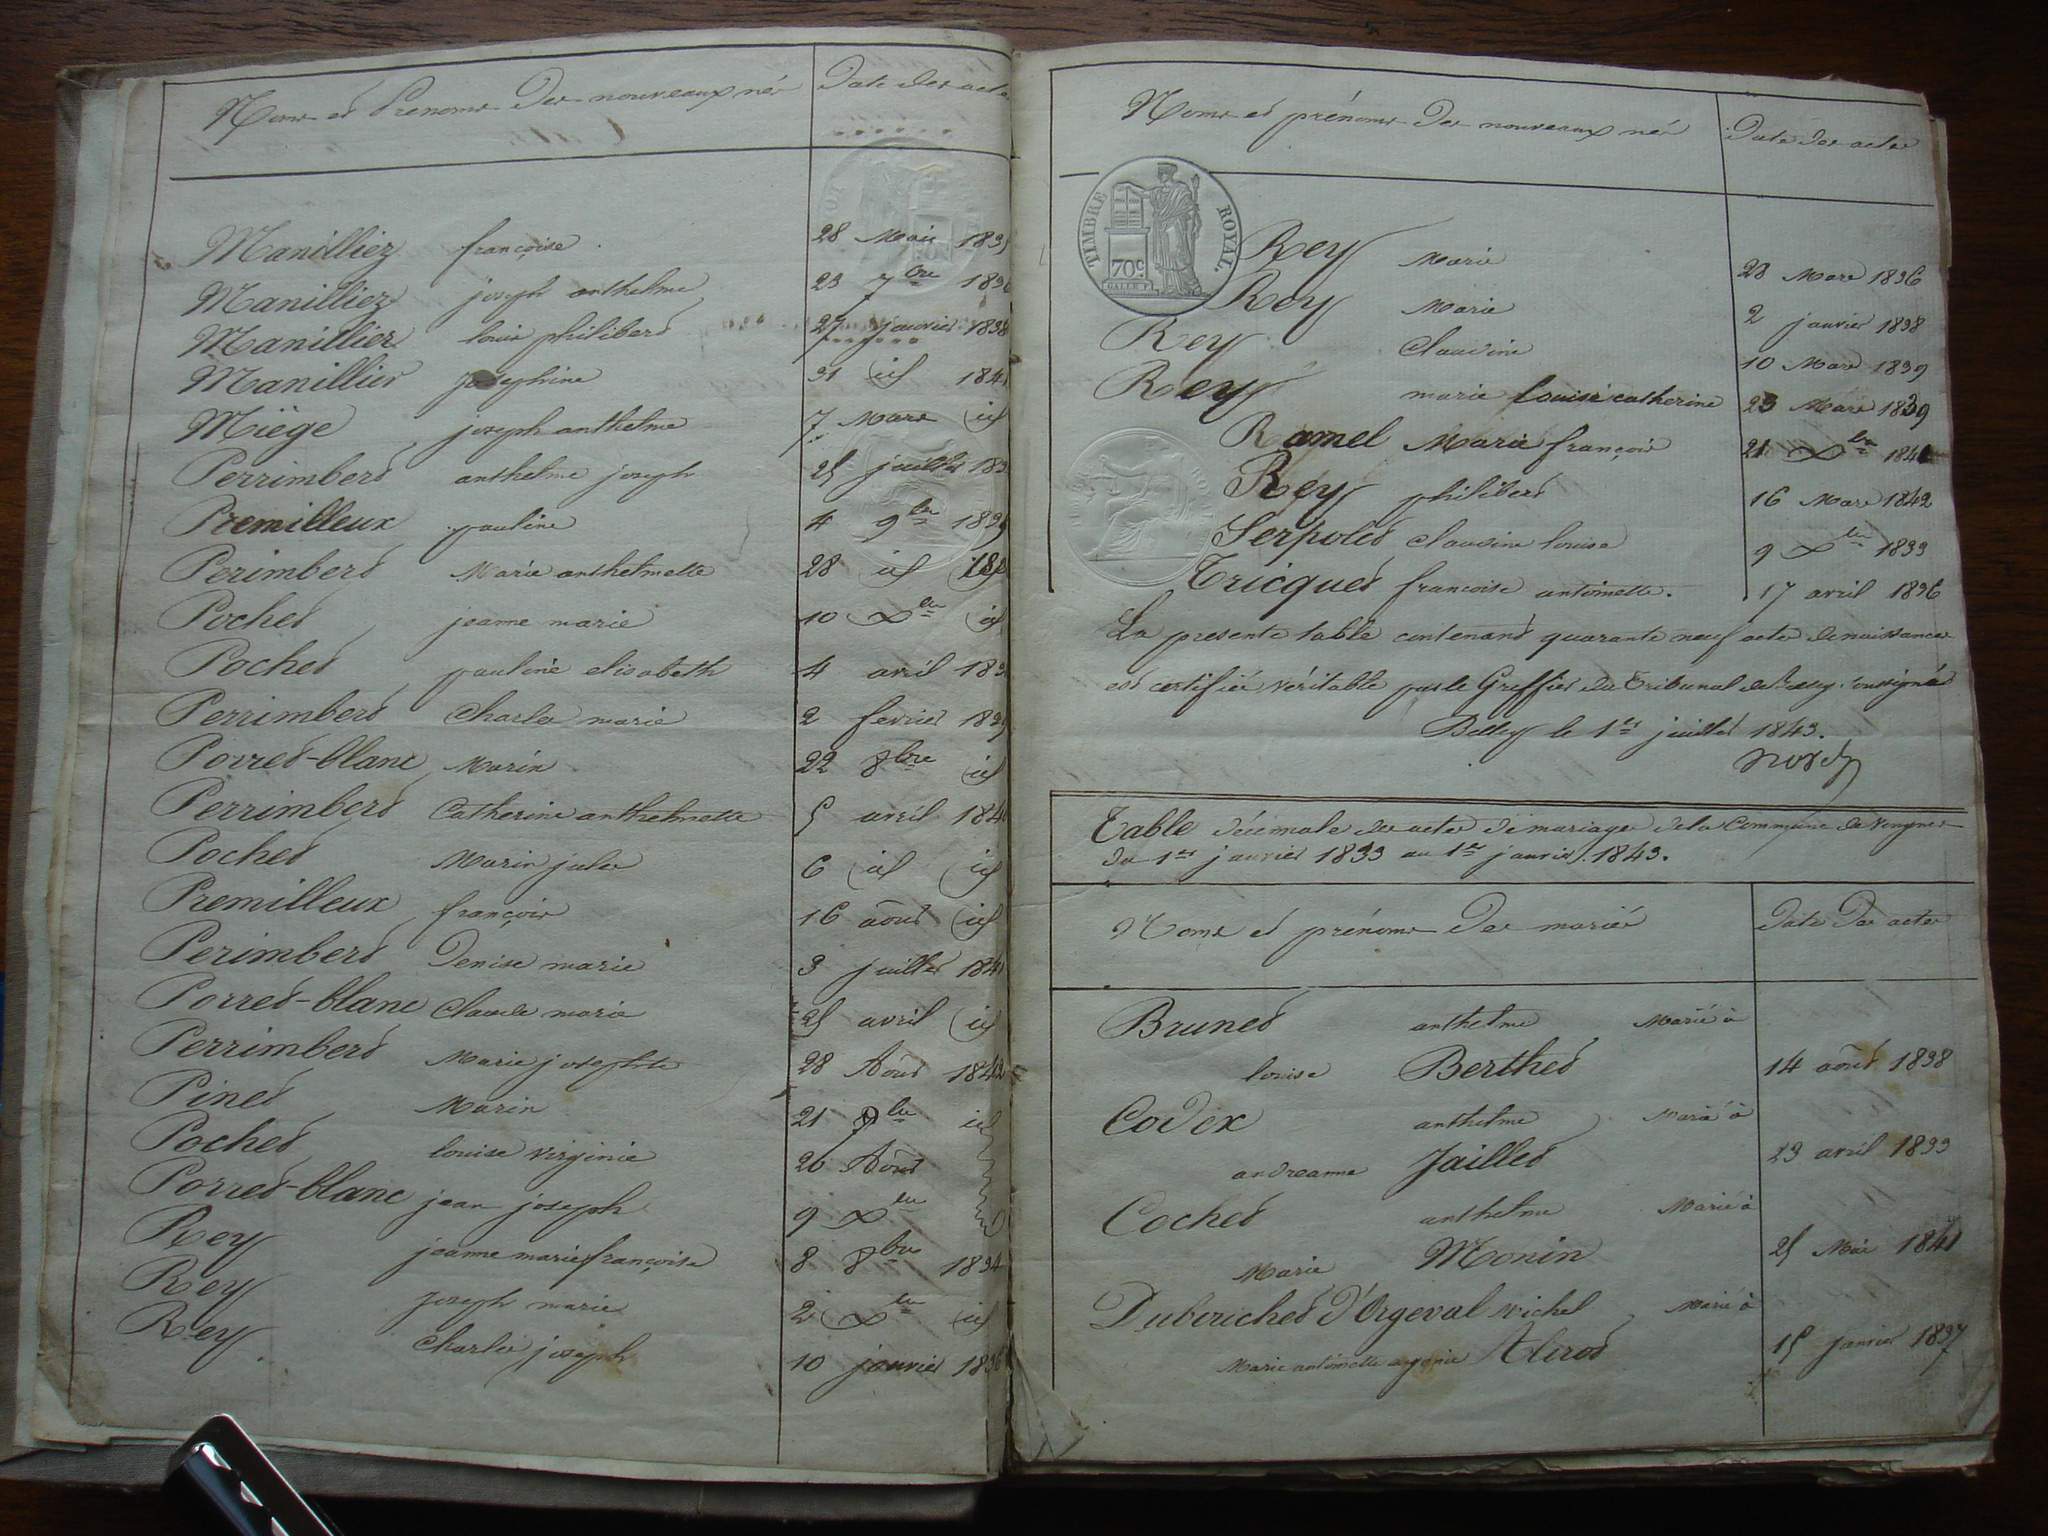 Noms et Prénoms des nouveaux nés Date des actes
Manilliez françoise 28 Mai 183
Manilliez joseph anthelme 23 7bre 183
Manillier louis philibert 27 janvier 1838
Manillier josephine 31 id 184
Miège joseph anthelme 7 Mars id
Perrimbert anthelme joseph 25 juillet 183
Premilleux pauline 4 9bre 183
Perimbert Marie anthelmette 28 id
Pochet jeanne marie 10 Xbre id
Pochet pauline elisabeth 4 avril 183
Perrimbert Charles marie 2 fevrier 183
Porret-blanc Marin 22 8bre id
Perrimbert Catherine anthelmette 5 avril 184
Pochet Marin jules 6 id id
Premilleux françois 16 août id
Perimbert Denise marie 3 juillet 184
Porret-blanc Claude marie 25 avril id
Perrimbert Marie josephte 28 Août 1842
Pinet Marin 21 id
Pochet louise virginie 20 Août
Porret-blanc jean joseph 9 Xbre
Rey jeanne marie françoise 8 8bre 1834
Rey joseph marie 2 Xbre id
Rey Charles joseph 10 janvier 1836
Noms et prénoms des nouveaux nés Date des actes
TIMBRE ROYAL.
70c
Rey Marie 28 Mars 1836
Rey Marie 2 janvier 1838
Rey Claudine 10 Mars 1839
Rey marie Louise catherine 23 Mars 1839
Ramel Marie françois 21 Xbre 184
Rey philibert 16 Mars 1842
Serpolet Claudine louise 9 Xbre 1833
Tricquet francoise antoinette. 17 avril 1836
La presente table contenant quarante neuf actes de naissances
est certifiée véritable par le Greffier du Tribunal de Belley soussigné
Belley le 1er juillet 1843.
Table décennale des actes de mariages de la Commune de
du 1er janvier 1833 au 1er janvier 1843.
Noms et prénoms des mariés Date des actes
Brunet anthelme Marié à
louise Berthet 14 août 1838
Codex anthelme Marié à
andreanne Jaillet 23 avril 1833
Cochet anthelme Marié à
Marie Monin 25 Mai 1841
Dubouchet d'Orgeval michel Marié à
Marie antoinette 15 janvier 1837